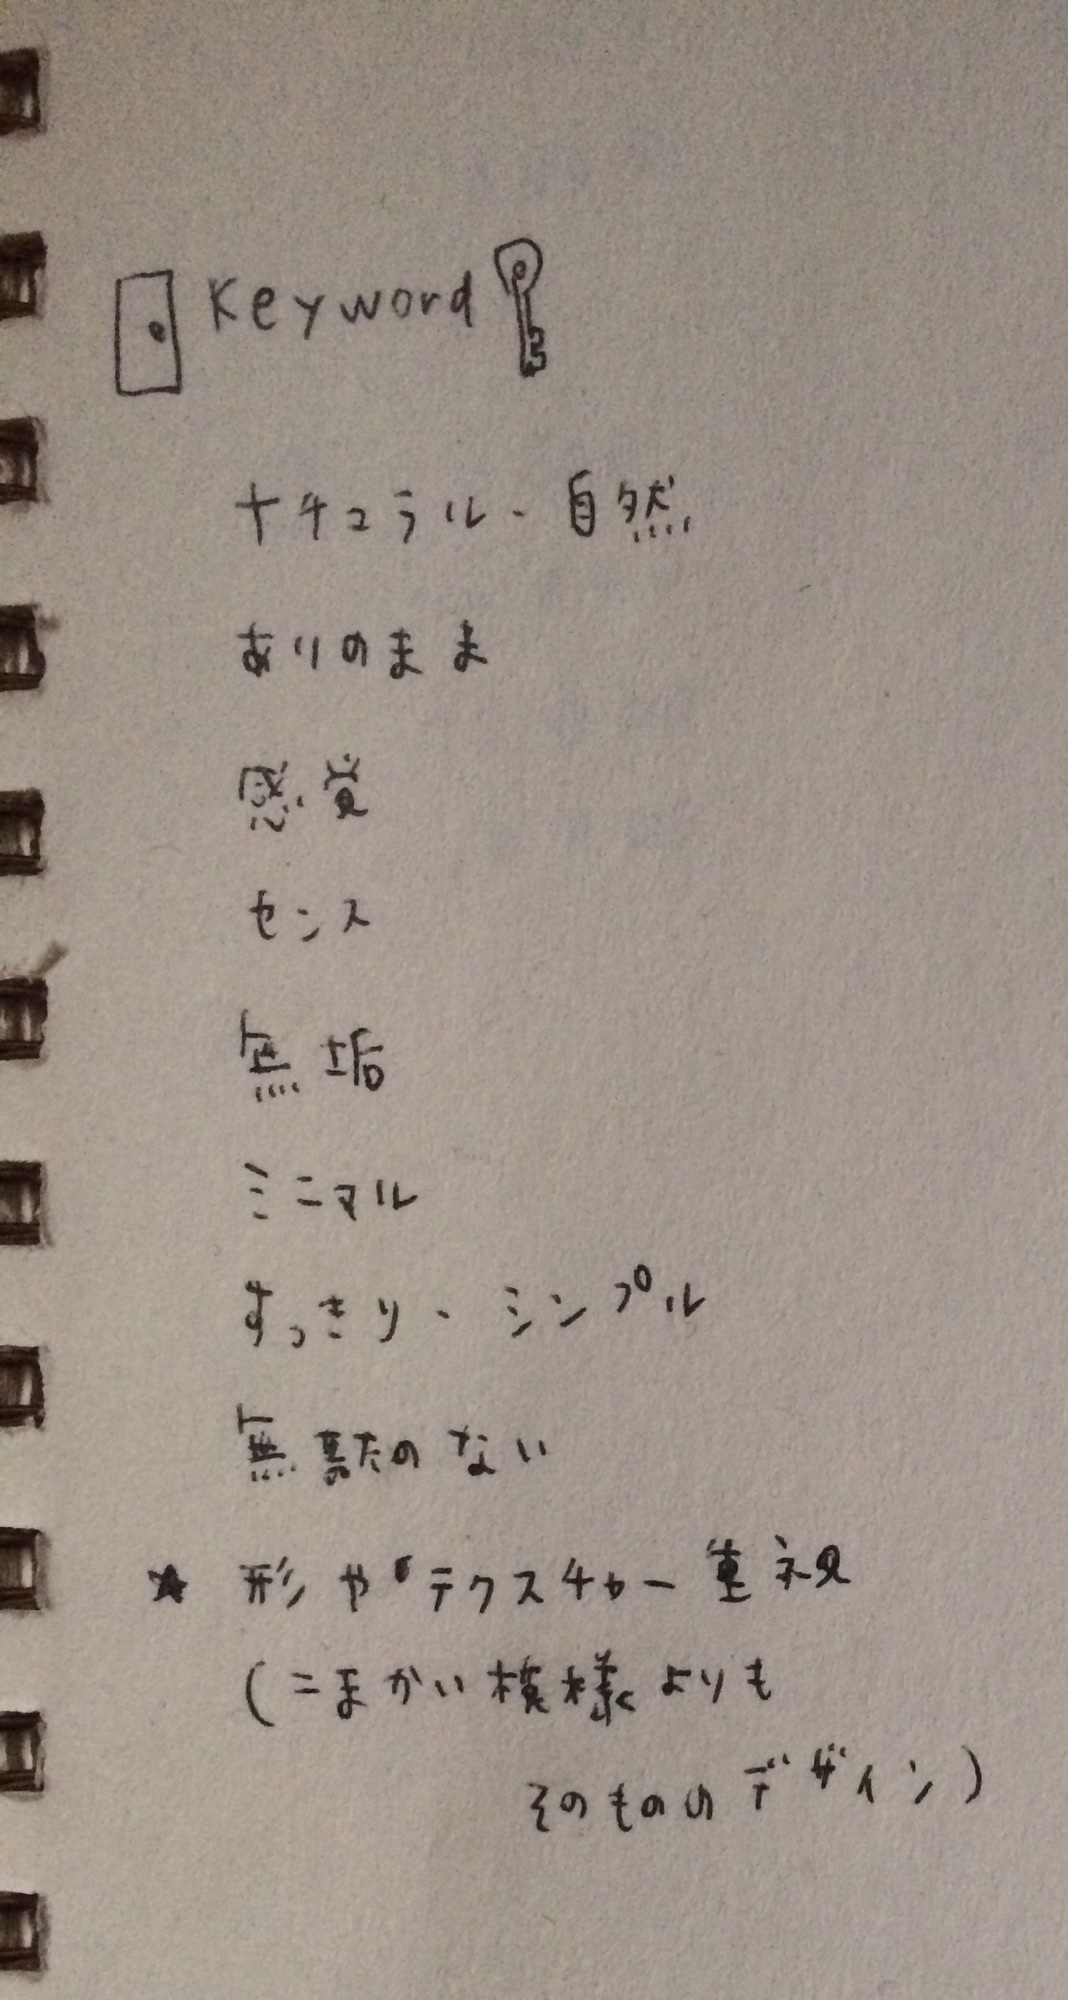 Keyword
ナチュラル・自然
ありのまま
感覚
センス
無垢
ミニマル
すっきり・シンプル
無駄のない
★ 形やテクスチャー重視
(こまかい模様よりも
そのもののデザイン)